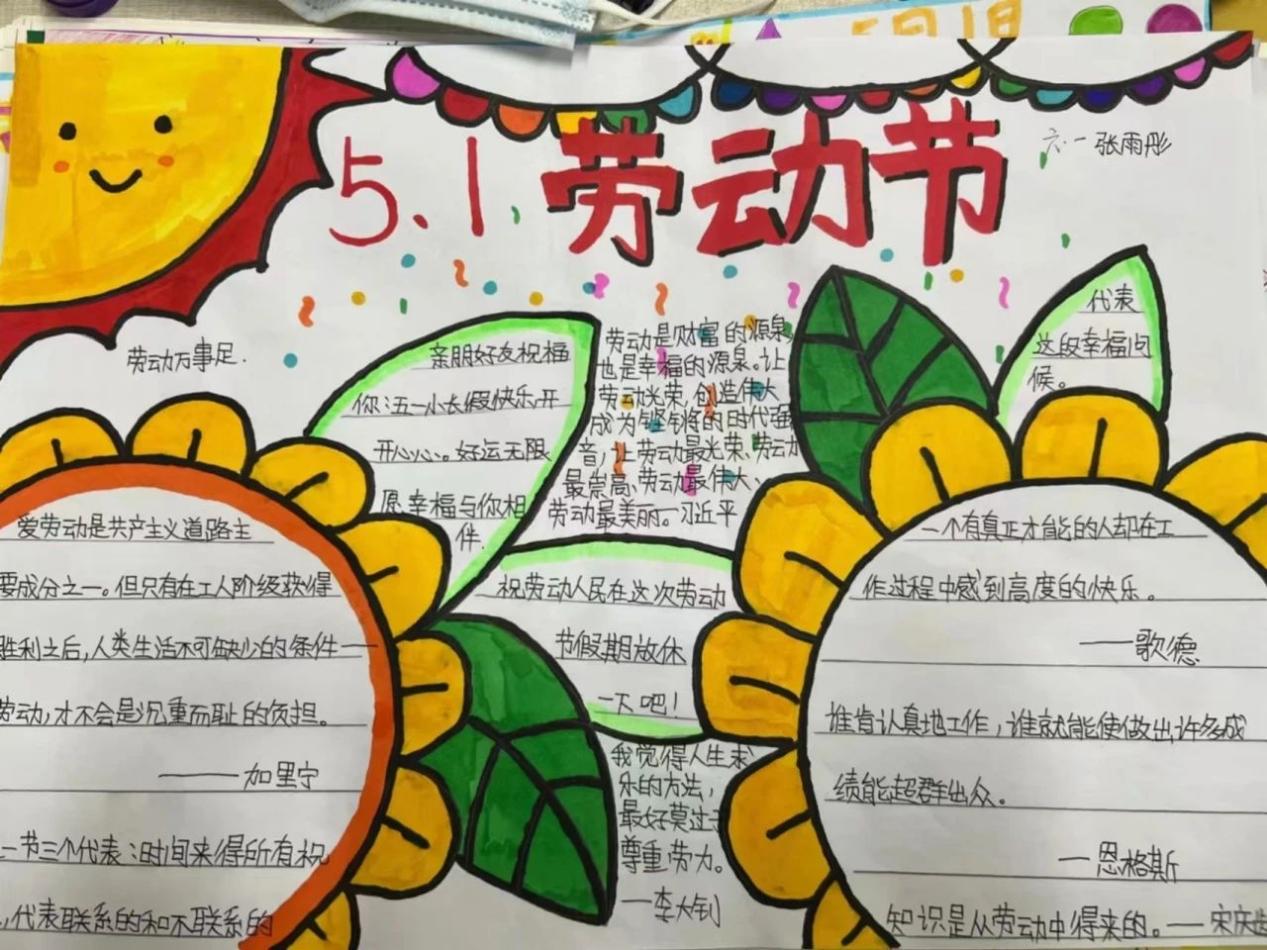 5.1劳动节
六.一 张雨彤
劳动万事足.
亲朋好友祝福
你:五一小长假快乐,开
开心心.好运无限
愿幸福与你相
伴.
劳动是财富的源泉,
也是幸福的源泉。让
劳动光荣,创造伟大
成为铿锵的时代强
音,让劳动最光荣、劳动
最崇高、劳动最伟大、
劳动最美丽。一习近平
代表
这段幸福问
候。
爱劳动是共产主义道路主
要成分之一。但只有在工人阶级获得
胜利之后,人类生活不可缺少的条件——
劳动,才不会是沉重而耻的负担。
——加里宁
一节三个代表:时间来得所有祝
,代表联系的和不联系的
祝劳动人民在这次劳动
节假期放休
一下吧!
我觉得人生求
乐的方法,
最好莫过于
尊重劳力。
一李大钊
一个有真正才能的人却在工
作过程中感到高度的快乐。
——歌德
谁肯认真地工作,谁就能使做出许多成
绩能超群出众。
—恩格斯
知识是从劳动中得来的。——宋庆龄